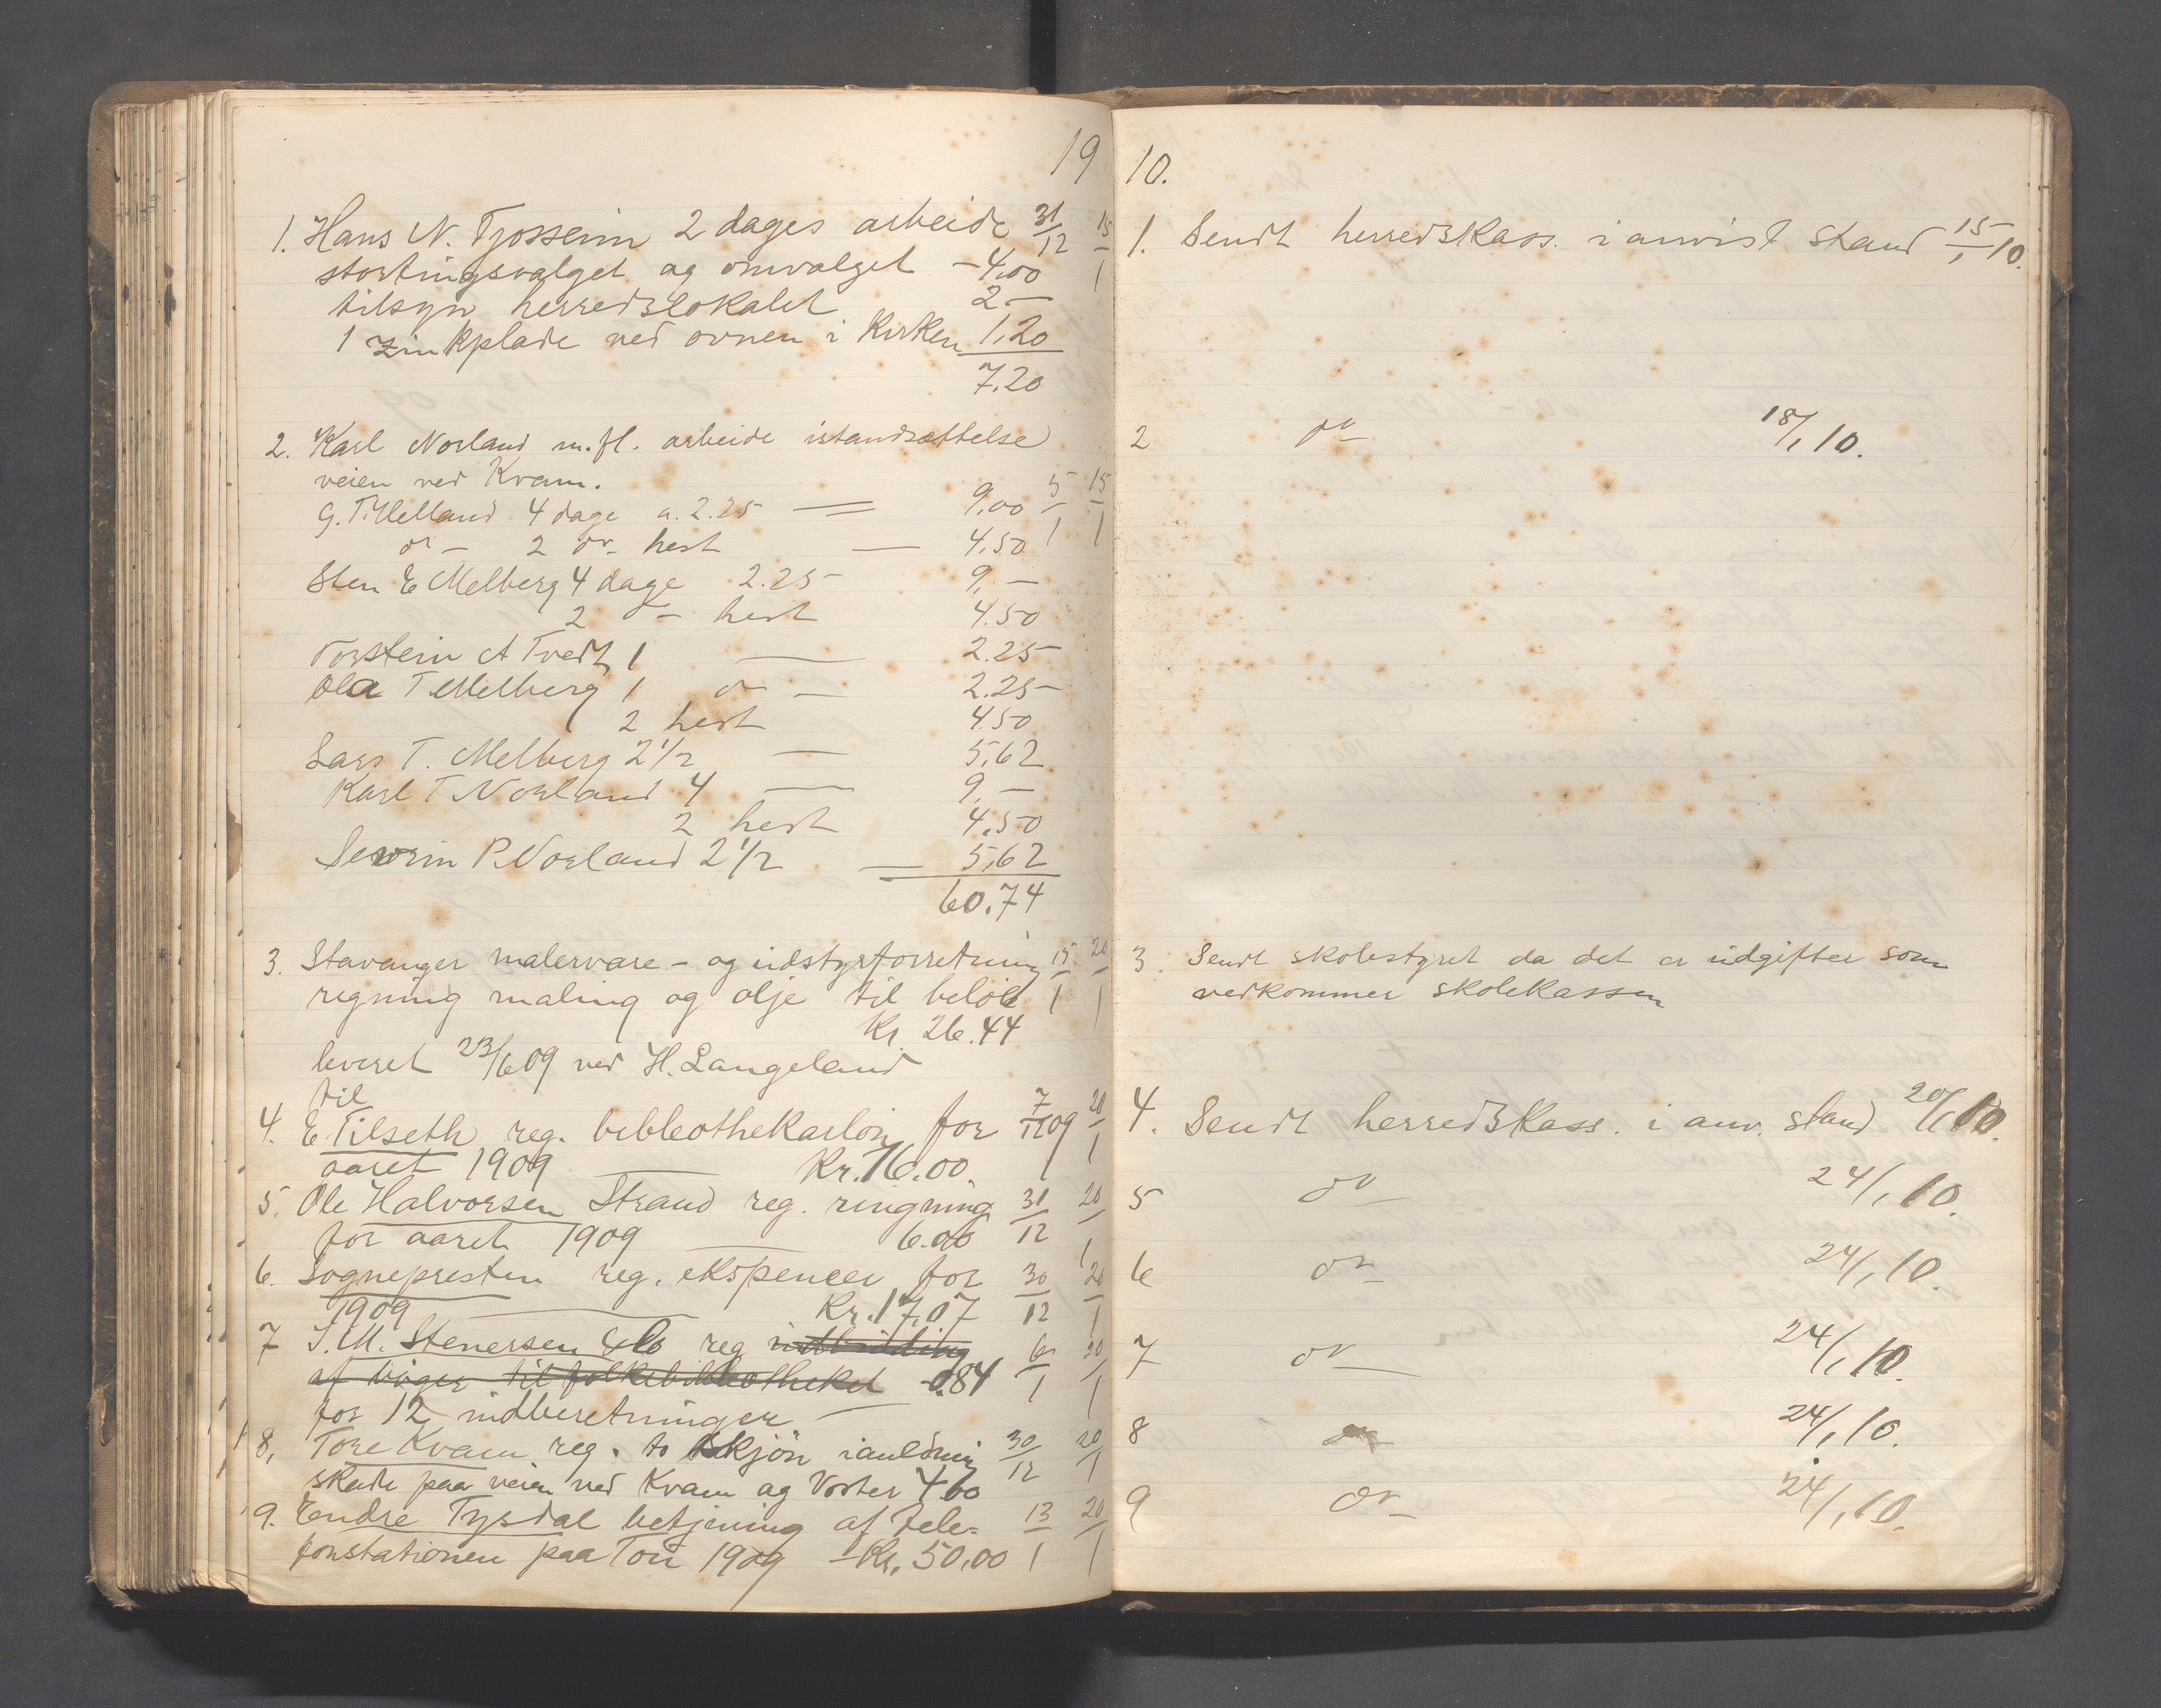 19 10.
1. Hans N. Tjossem 2 dages arbeide 31/12 15/1
stortingsvalget og omvalget - 4,00
tilsyn herredslokalet 2 -
1 zinkplade ved ovnen i Kirken 1,20
7.20
2. Karl Norland m.fl. arbeide istandsættelse
veien ved Kvam. 5/1 15/1
G. T. Helland 4 dage a. 2.25 — 9,00
do - 2 do - hest — 4,50
Sten E Melberg 4 dage 2.25 - 9, -
2 " - hest 4.50
Torstein A Tvedt 1 — 2.25 -
Ola T Melberg 1 do - 2.25 -
2 hest 4.50
Lars T. Melberg 2 1/2 — 5,62
Karl T Norland 4 — 9, -
2 hest 4,50
Severin P. Norland 2 1/2 — 5,62
60.74
3. Stavanger malervare - og udstyrforretning 15/1 20/1
regning maling og olje til beløb
Kr. 26.44
leveret 23/6 09 ved H. Langeland
til
4. E. Tilseth reg. bibleothekarløn for 7/12 09 20/1
aaret 1909 — Kr. 16.00.
5. Ole Halvorsen Strand reg. ringning 31/12 20/1
for aaret 1909 — 6.00
6. Sognepresten reg. ekspencer for 30/12 20/1
1909 — Kr. 17,07
7 J. M. Stenersen & Co reg indbinding 6/1 20/1
af bøger til folkebibliotheket - 0.84
for 12 indberetninger —
8. Tore Kvam reg. to skjøn 30/12 20/1
skade paa veien ved Kvam og Voster 4.60
9. Endre Tysdal betjening af Tele= 13/1 20/1
fonstationen paa Tou 1909 - Kr. 50,00
1. Sendt herredskass. i anvist stand 15/1 10.
2 do - 18/1 10.
3. Sendt skolestyret da det er udgifter som
vedkommer skolekassen
4. Sendt herredskass. i anv. stand 20/1 10.
5 do - 24/1 10.
6 do - 24/1 10.
7 do - 24/1 10.
8 do - 24/1 10.
9 do - 24/1 10.